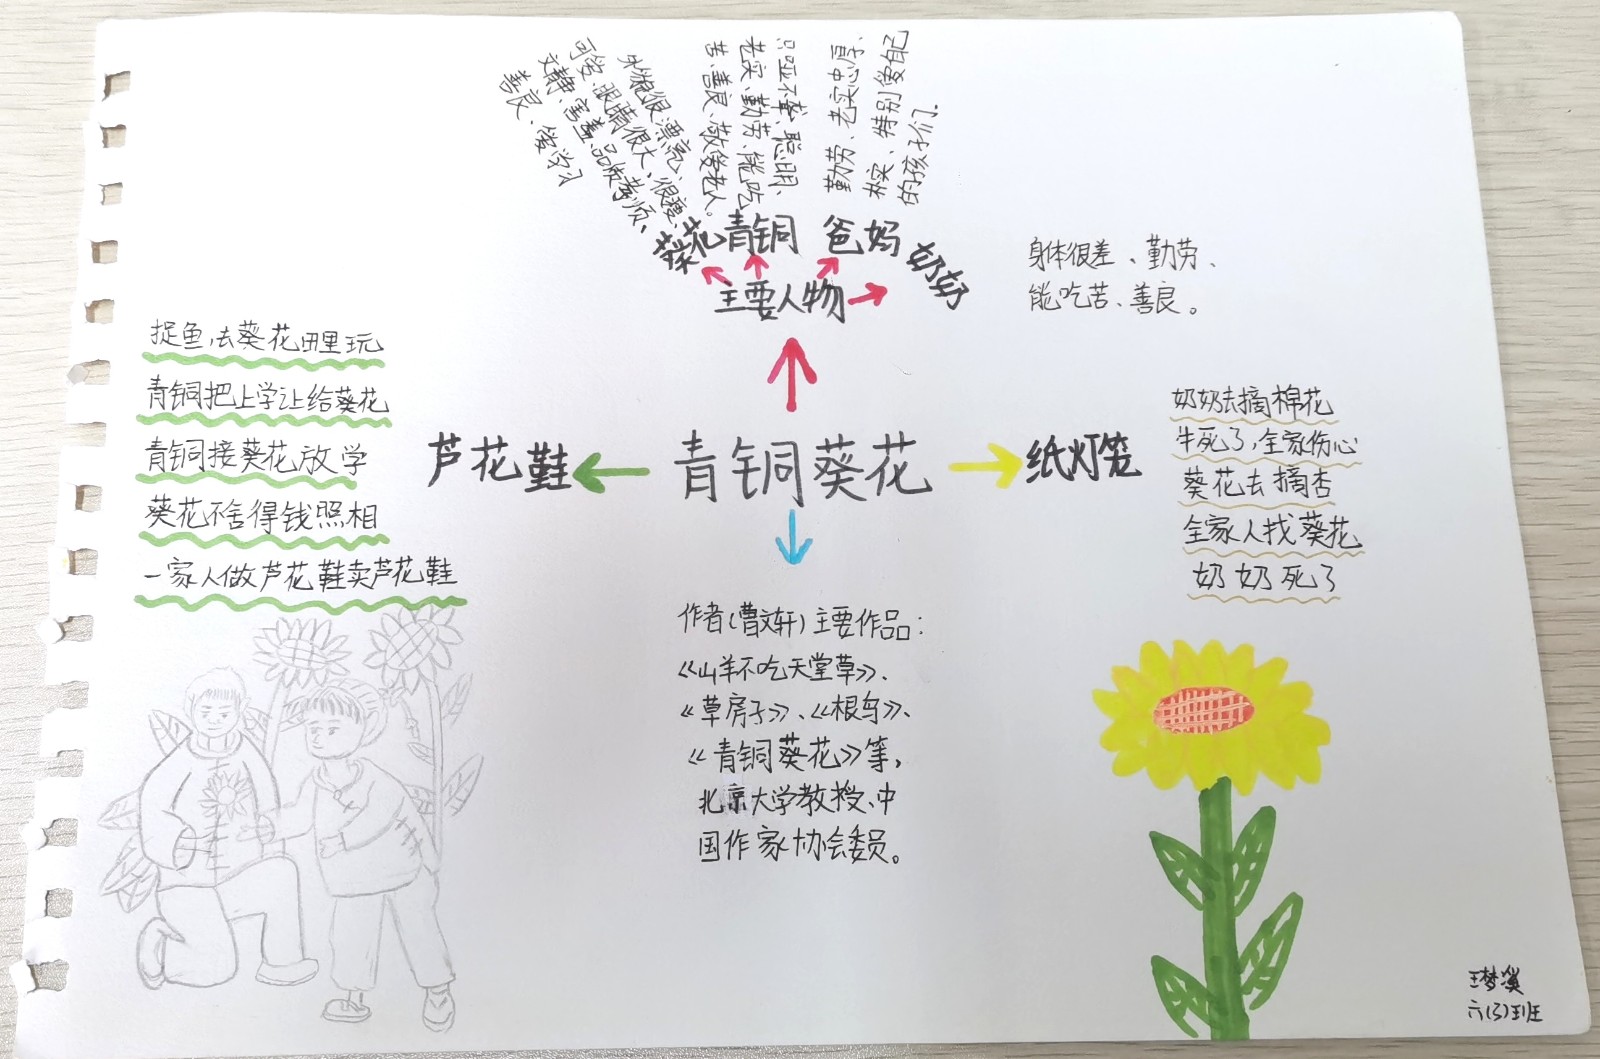 外貌很漂亮、
可爱、眼睛很大、很瘦、
文静、害羞、品做事烦、
善良、爱学习
只哑不聋、聪明、
老实、勤劳、能吃
苦、善良、敬爱老人。
勤劳、老实忠厚、
朴实、特别爱自己
的孩子们.
葵花
青铜
爸妈
奶奶
主要人物
身体很差、勤劳、
能吃苦、善良。
捉鱼,去葵花田里玩
青铜把上学让给葵花
青铜接葵花放学
葵花不舍得钱照相
一家人做芦花鞋卖芦花鞋
芦花鞋
青铜葵花
纸灯笼
奶奶去摘棉花
牛死了,全家伤心
葵花去摘杏
全家人找葵花
奶奶死了
作者(曹文轩)主要作品:
《山羊不吃天堂草》、
《草房子》、《根鸟》、
《青铜葵花》等,
北京大学教授、中
国作家协会委员。
王梦溪
六(3)班